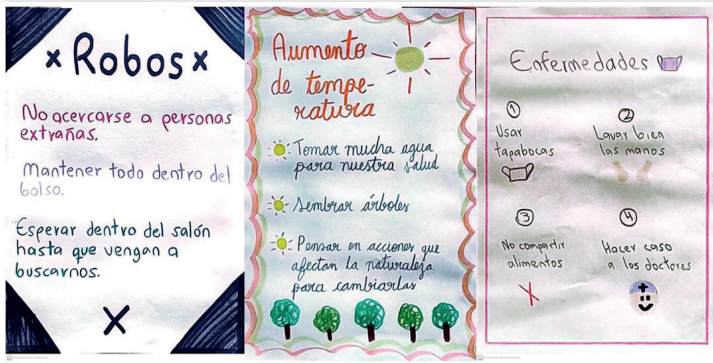 x Robos x
No acercarse a personas
extrañas.
Mantener todo dentro del
bolso.
Esperar dentro del salón
hasta que vengan a
buscarnos.
X
Aumento
de tempe-
ratura
Tomar mucha agua
para nuestra salud
Sembrar árboles
Pensar en acciones que
afectan la naturaleza
para cambiarlas
Enfermedades
1
Usar
tapabocas
2
Lavar bien
las manos
3
No compartir
alimentos
4
Hacer caso
a los doctores